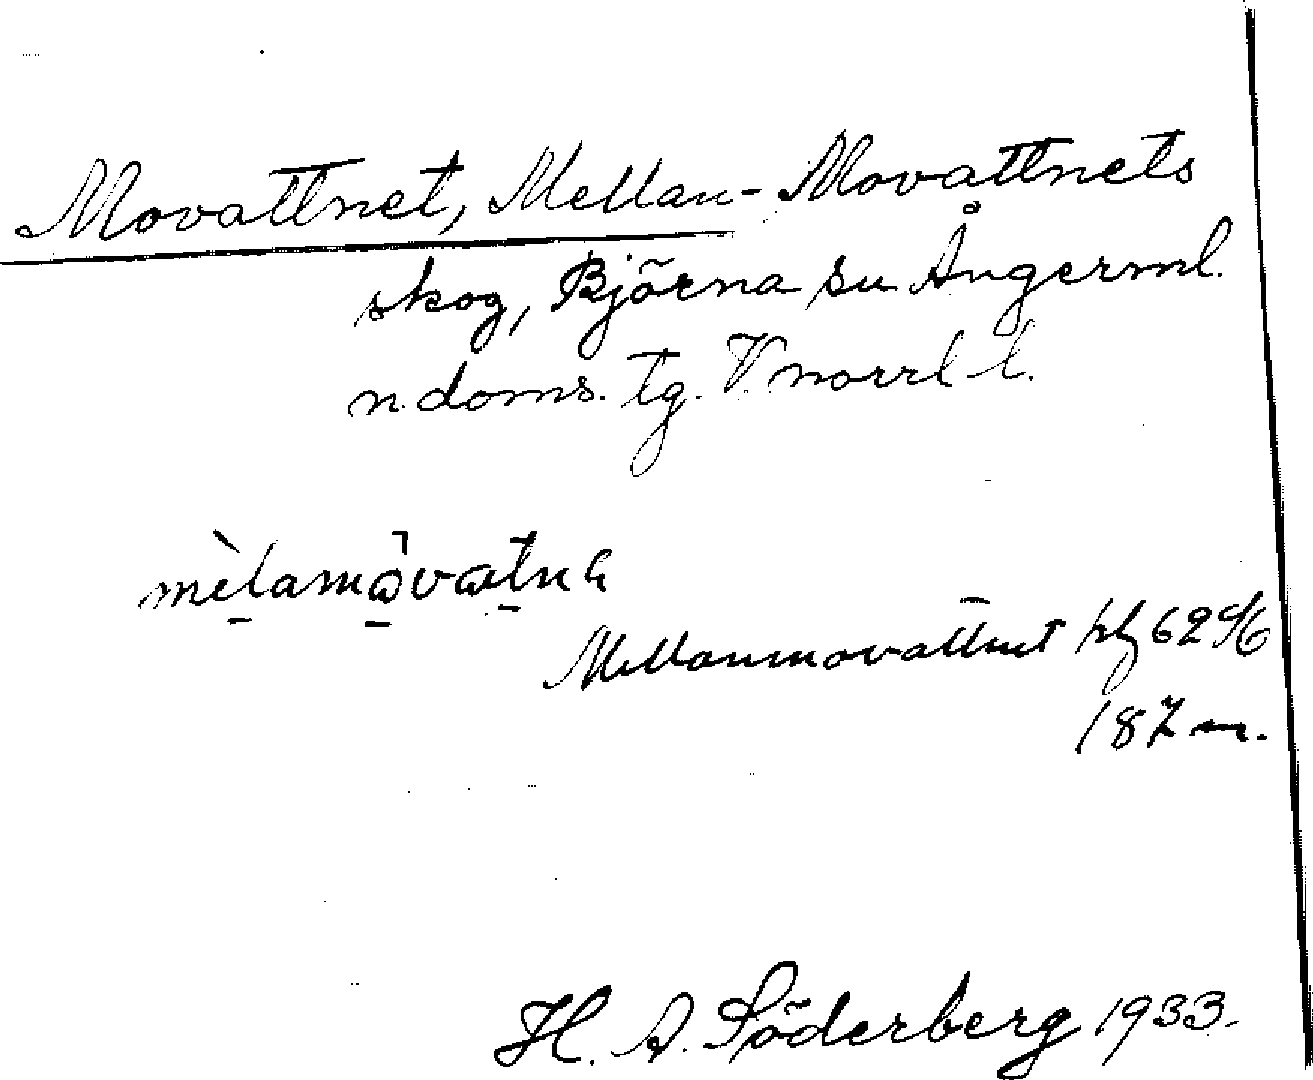 Movattnet, Mellan- Movattnets
skog, Björna sn Ångerml.
n. doms. tg. V. norrl. l.
mèlamòvatnə
Mellanmovattnet
187 m.
H. A. Söderberg 1933.